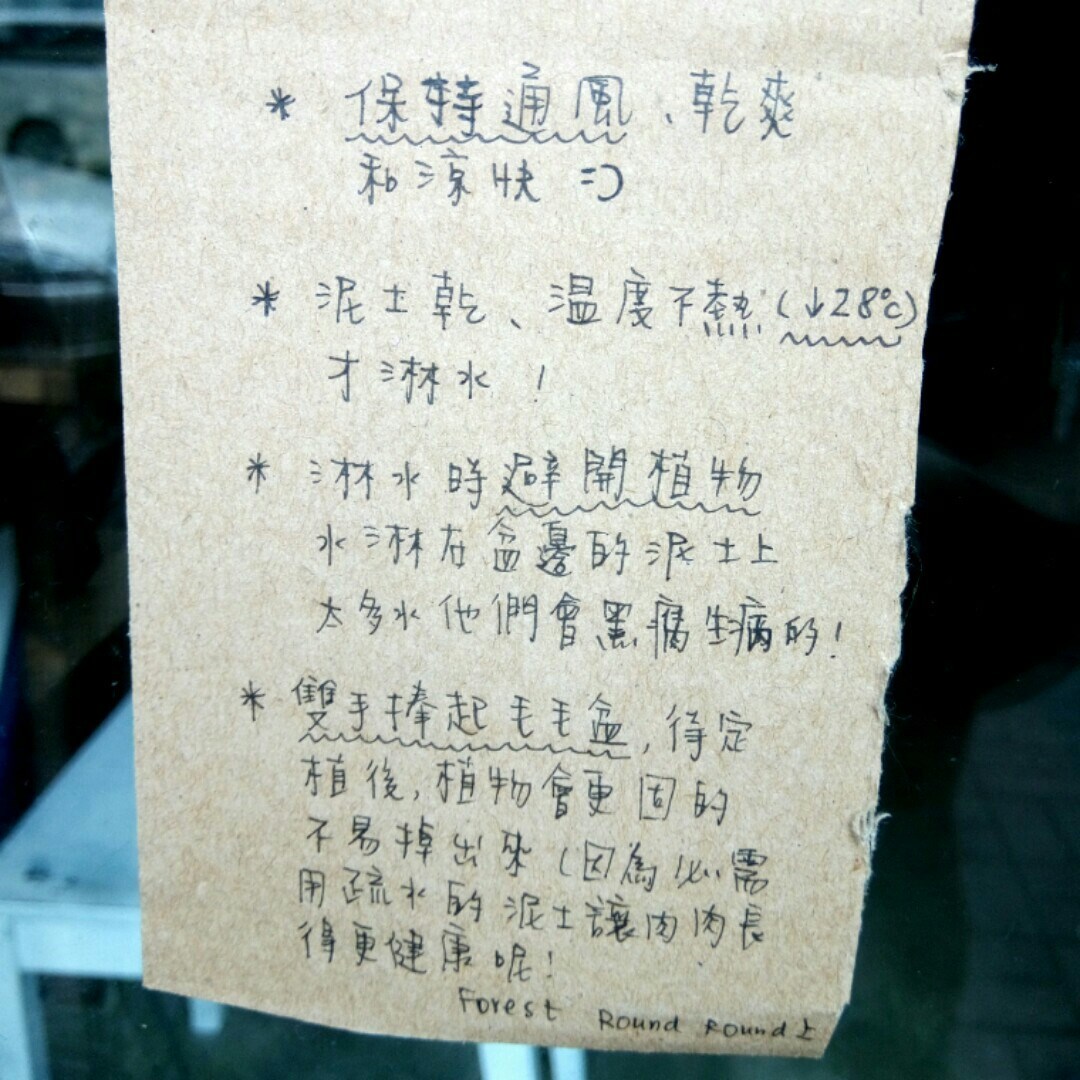 * 保持通風、乾爽
和涼快 =)
* 泥土乾、溫度不熱 (↓28°c)
才淋水！
* 淋水時避開植物
水淋在盆邊的泥土上
太多水他們會黑腐生病的！
* 雙手捧起毛毛盆，待定
植後，植物會更固的
不易掉出來（因為必需
用疏水的泥土讓肉肉長
得更健康呢！
Forest Round Round上